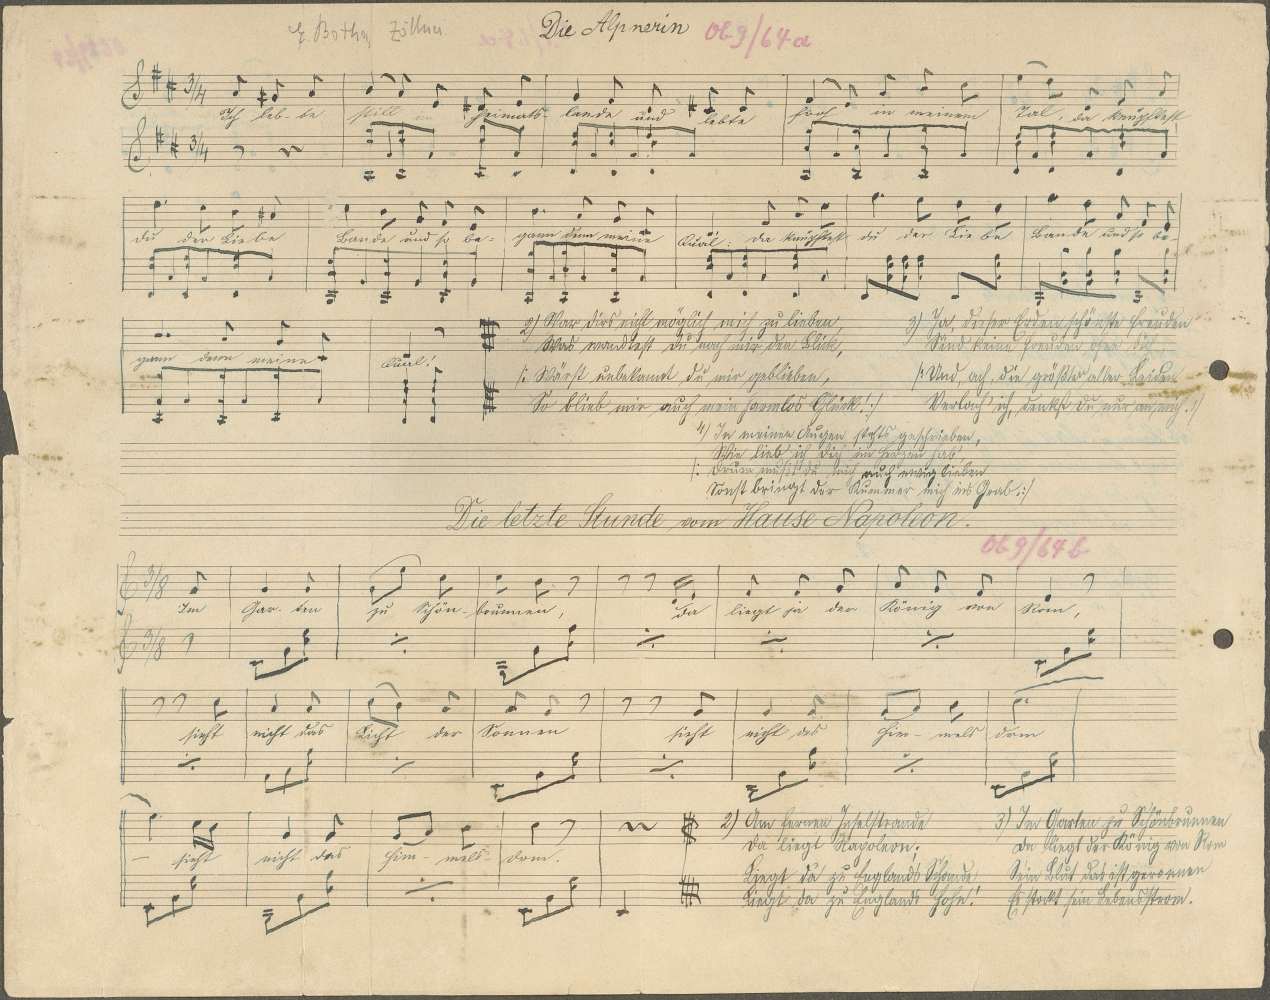 Die Alpnerin
069/64a
3/4
Ich leb-te still im Heimats-lande und lebte froh in meinem Tal, da knüpftest
3/4
du der Liebe Bande und so be-gann denn meine Qual: da knüpftest du der Liebe Bande und so be-
gann denn meine Qual!
2) War dirs nicht möglich mich zu lieben,
Was wandtest du nach mir den Blick,
/: Wärst unbekannt du mir geblieben,
So blieb mir auch mein harmlos Glück! :/
3) Ja, dieser Erden schönste Freuden
Sind keine Freuden ohne dich
/: Und, ach, die größten aller Leiden
Verlach' ich, denkst du nur an mich. :/
4) In meinen Augen stehts geschrieben,
Wie lieb' ich dich im Herzen hab',
/: Drum mußt du mich auch ewig lieben
Sonst bringt der Kummer mich ins Grab. :/
Die letzte Stunde vom Hause Napoleon.
069/64b
3/8
Im Gar-ten zu Schön-brunnen, da liegt ja der König von Rom,
3/8
sieht nicht das Licht der Sonnen sieht nicht des Him-mels dom
– sieht nicht das Him-mels-dom.
2) Am fernen Inselstrande
Da liegt Napoleon;
Liegt da zu Englands Schande
Liegt da zu Englands Hohn!
3) Im Garten zu Schönbrunnen
Da liegt der König von Rom
Sein Blut das ist geronnen
Es stockt sein Lebensstrom.